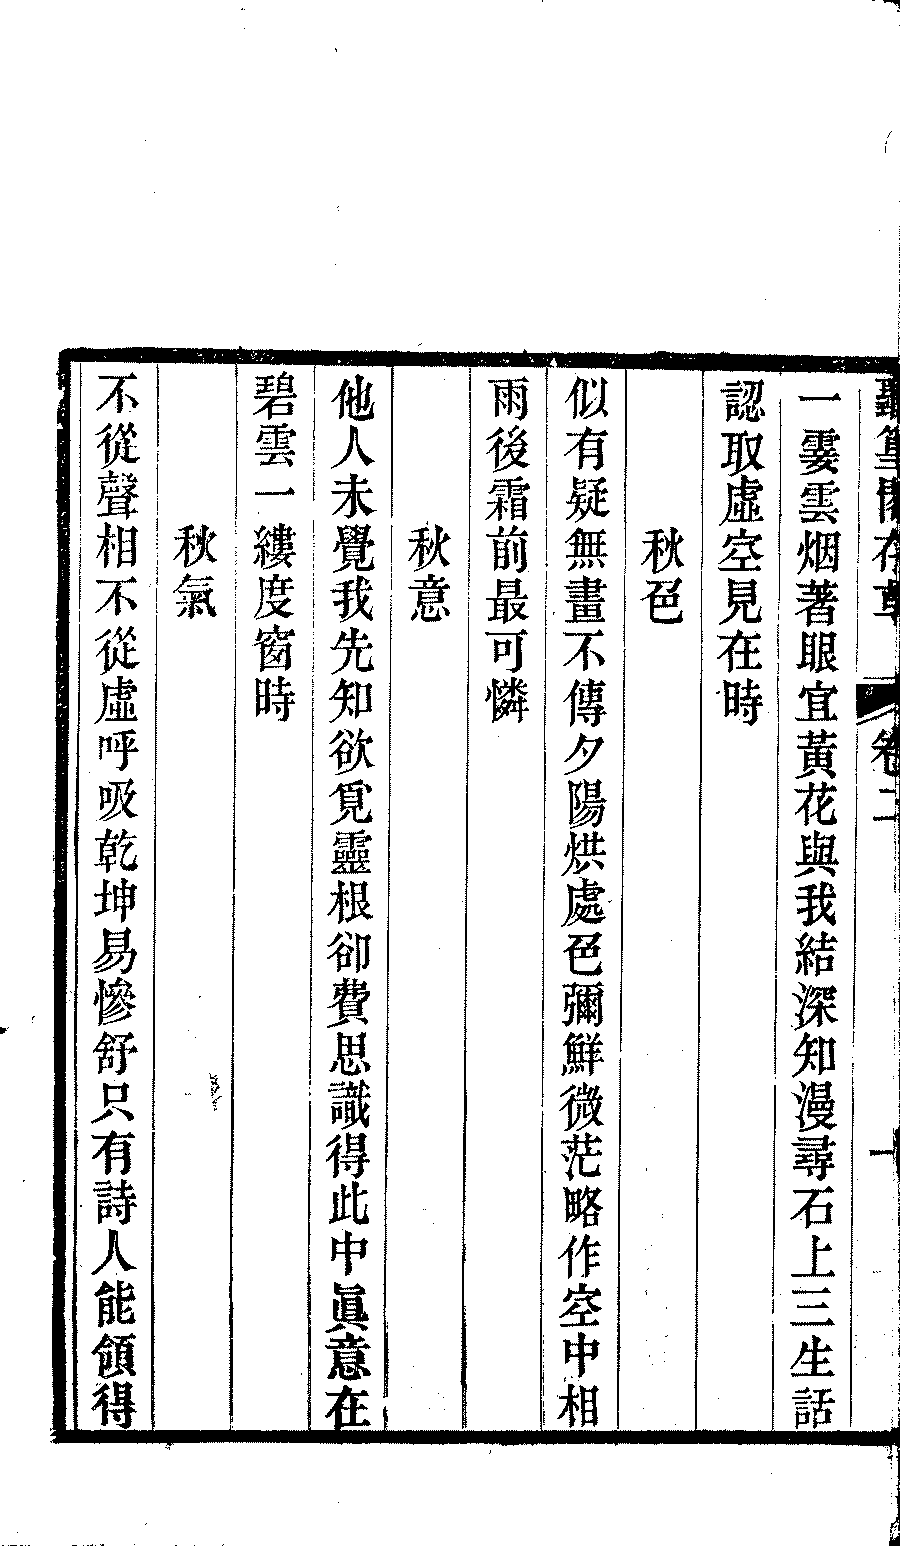 聽篁閣存草 卷二 一
一霎雲烟著眼宜黃花與我結深知漫尋石上三生話
認取虛空見在時
秋色
似有疑無畫不傳夕陽烘處色彌鮮微茫略作空中相
雨後霜前最可憐
秋意
他人未覺我先知欲覓靈根卻費思識得此中眞意在
碧雲一縷度窗時
秋氣
不從聲相不從虛呼吸乾坤易慘舒只有詩人能領得